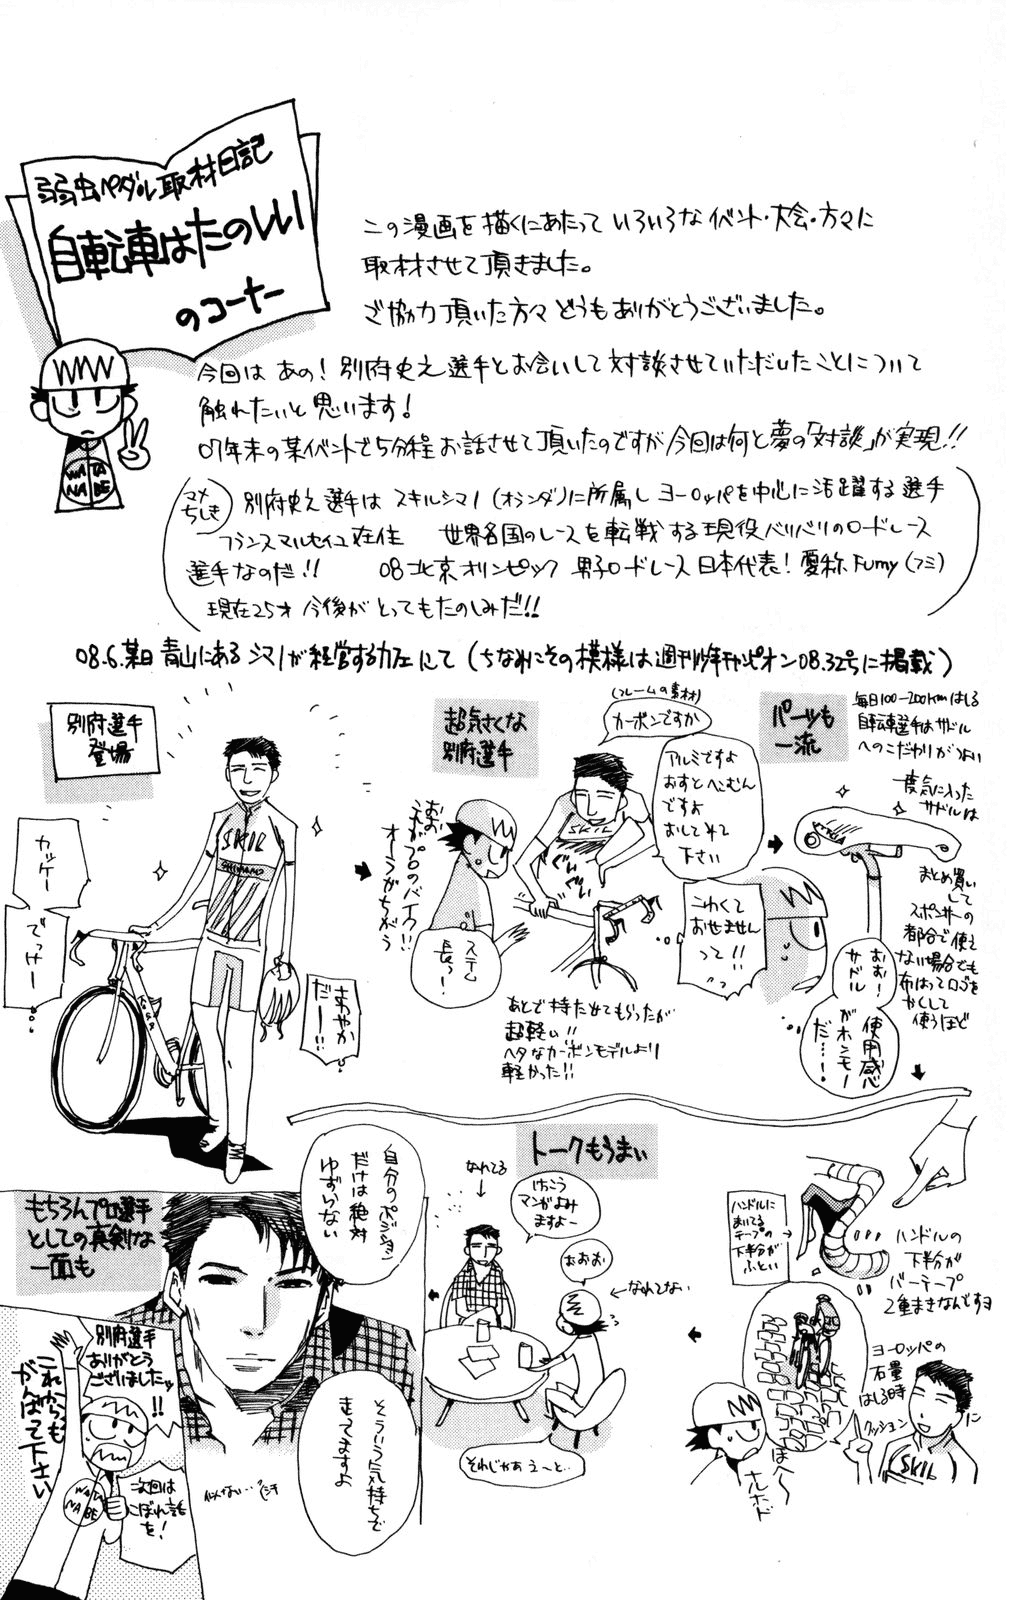 弱虫ペダル取材日記
自転車はたのしい
のコーナー
この漫画を描くにあたって いろいろなイベント・大会・方々に
取材させて頂きました。
ご協力頂いた方々 どうもありがとうございました。
今回は あの! 別府史之選手とお会いして 対談させていただいたことについて
触れたいと思います!
07年末の某イベントで5分程 お話させて頂いたのですが今回は何と夢の「対談」が実現!!
マメ
ちしき
別府史之選手は スキルシマノ(オランダ)に所属し ヨーロッパを中心に活躍する選手
フランスマルセイユ在住 世界各国のレースを転戦する現役バリバリのロードレース
選手なのだ!! 08北京オリンピック 男子ロードレース日本代表! 愛称Fumy(フミ)
現在25才 今後がとってもたのしみだ!!
08.6.某日 青山にある シマノが経営するカフェにて(ちなみにその模様は週刊少年チャンピオン08.32号に掲載)
別府選手
登場
カッケー
でっけー
さわやか
だー!!
SKIL
SHIMANO
超気さくな
別府選手
(フレームの素材)
カーボンですか
アルミですよ
おすとへこむん
ですよ
おしてみて
下さい
おお
これがプロのバイク!!
オーラがちがう
SKIL
ステム
長っ!
こわくて
おせません
って!!
あとで持たせてもらったが
超軽い!!
ヘタなカーボンモデルより
軽かった!!
パーツも
一流
毎日100-200kmはしる
自転車選手はサドル
へのこだわりがつよい
一度気に入った
サドルは
まとめ買い
して
スポンサーの
都合で使え
ない場合でも
布はってロゴを
かくして
使うほど
おお!
サドル
使用感
がホンモノ
だ…!
ハンドルに
まいてる
テープの
下半分が
ぶとい
ハンドルの
下半分が
バーテープ
2重まきなんですヨ
ヨーロッパの
石畳
はしる時
クッションに
SKIL
ほへ〜
ナルホド
トークもうまい
なれてる
けっこう
マンガよみ
ますよー
おおお
←なれてない
それじゃあ えーと…
もちろんプロ選手
としての真剣な
一面も
自分のポジション
だけは絶対
ゆずらない
そういう気持ちで
走ってますよ
似てない…
別府選手
ありがとう
ございましたッ
!!
これからも
がんばって下さい
次回は
こぼれ話
を!
WATA
NABE